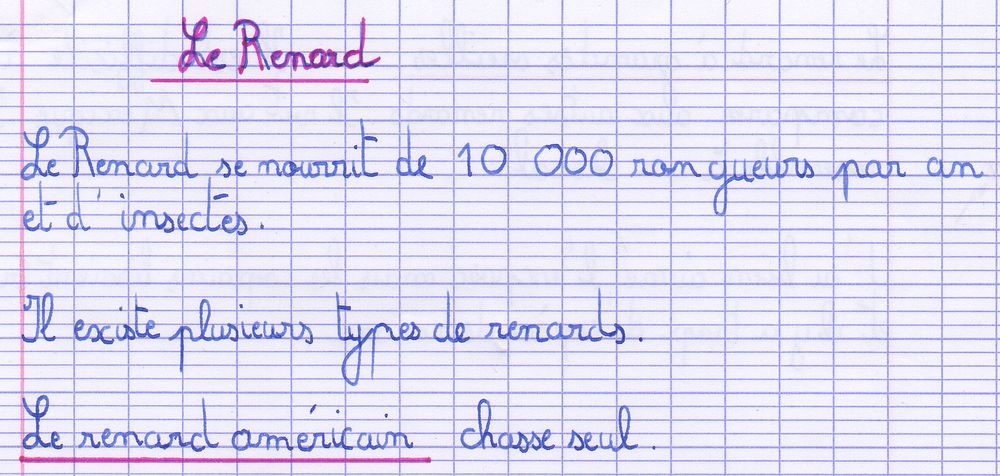 Le Renard
Le Renard se nourrit de 10 000 rongueurs par an
et d'insectes.
Il existe plusieurs types de renards.
Le renard américain chasse seul.